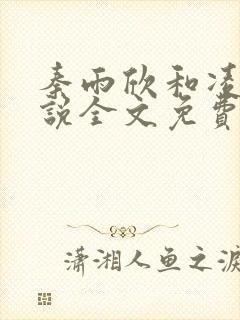 秦雨欣和凌
說全文免費
瀟湘人鱼之淚